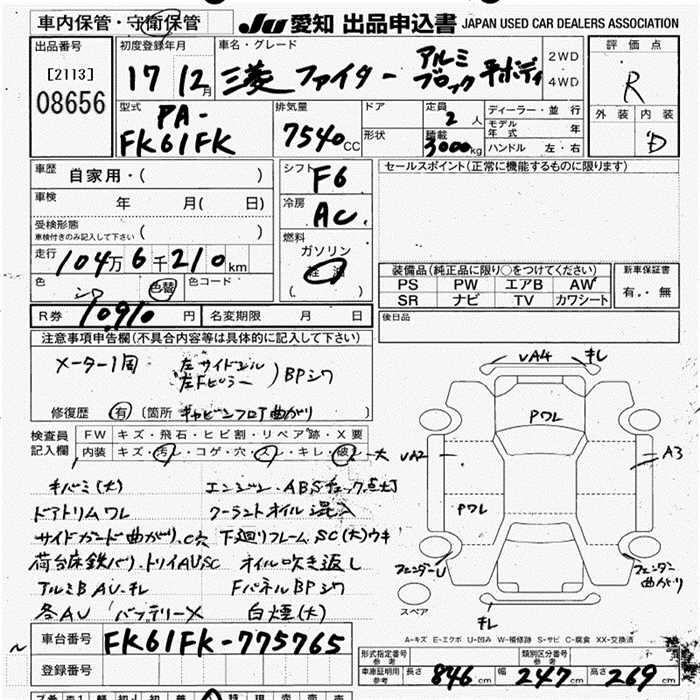 車内保管・守衛保管
JU 愛知 出品申込書 JAPAN USED CAR DEALERS ASSOCIATION
出品番号
[2113]
08656
初度登録年月
17 12月
車名・グレード
三菱 ファイター アルミブロック 平ボディ
2WD
4WD
評価点
R
外装 内装
D
型式
PA-
FK61FK
排気量
7540cc
ドア
形状
定員
2人
積載
3000kg
ディーラー・並行
モデル年式 年
ハンドル 左・右
車歴
自家用・( )
車検
年 月( 日)
受検形態
車検付きのみ記入して下さい ( )
走行
104万6千210km
色
シロ
色替
色コード
シフト
F6
冷房
AC
燃料
ガソリン
軽油
( )
セールスポイント(正常に機能するものに限ります)
装備品(純正品に限り○をつけてください)
PS PW エアB AW
SR ナビ TV カワシート
新車保証書
有・無
後日品
R券 10910円
名変期限 月 日
注意事項申告欄(不具合内容等は具体的に記入して下さい)
メーター1周
左サイドシル
左Fピラー
)BPシワ
修復歴 有 [箇所 キャビンフロア曲がり ]
検査員記入欄
FW キズ・飛石・ヒビ割・リペア跡・X要
内装 キズ・汚レ・コゲ・穴・スレ・キレ・破レ 大
キバミ(大)
エンジン・ABSチェック点灯
ドアトリムワレ
クーラントオイル混入
サイドガード曲がり、C穴
下廻りフレームSC(大)ウキ
荷台床鉄バリ、トリイAUSC
オイル吹き返し
アルミB AU、キレ
FパネルBPシワ
各AU
バッテリーX
白煙(大)
VA4
キレ
Pワレ
VA2
A3
Pワレ
フェンダーU
フェンダー曲がり
スペア
キレ
A-キズ E-エクボ U-凹み W-補修跡 S-サビ C-腐食 XX-交換済
車台番号 FK61FK-775765
登録番号
形式指定番号 参考
類別区分番号 参考
車庫証明用参考 長さ 846cm 幅 247cm 高さ 269cm